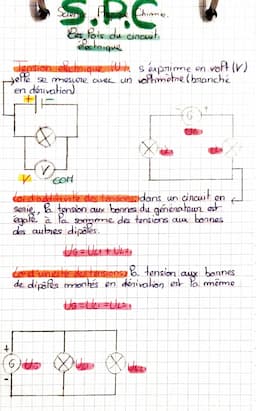 S.P.C
Science Physique Chimie.
Les lois du circuit
électrique
Tension électrique (U): s'exprime en volt (V)
elle se mesure avec un voltmètre (branché
en dérivation)
+ -
G
UG
V
V COM
UL1 UL2
Loi d'additivité des tensions: dans un circuit en
série, la tension aux bornes du générateur est
égale à la somme des tensions aux bornes
des autres dipôles.
UG = UL1 + UL2
Loi d'unicité des tensions: la tension aux bornes
de dipôles montés en dérivation est la même
UG = UL1 = UL2
+
G UG UL1 UL2
-